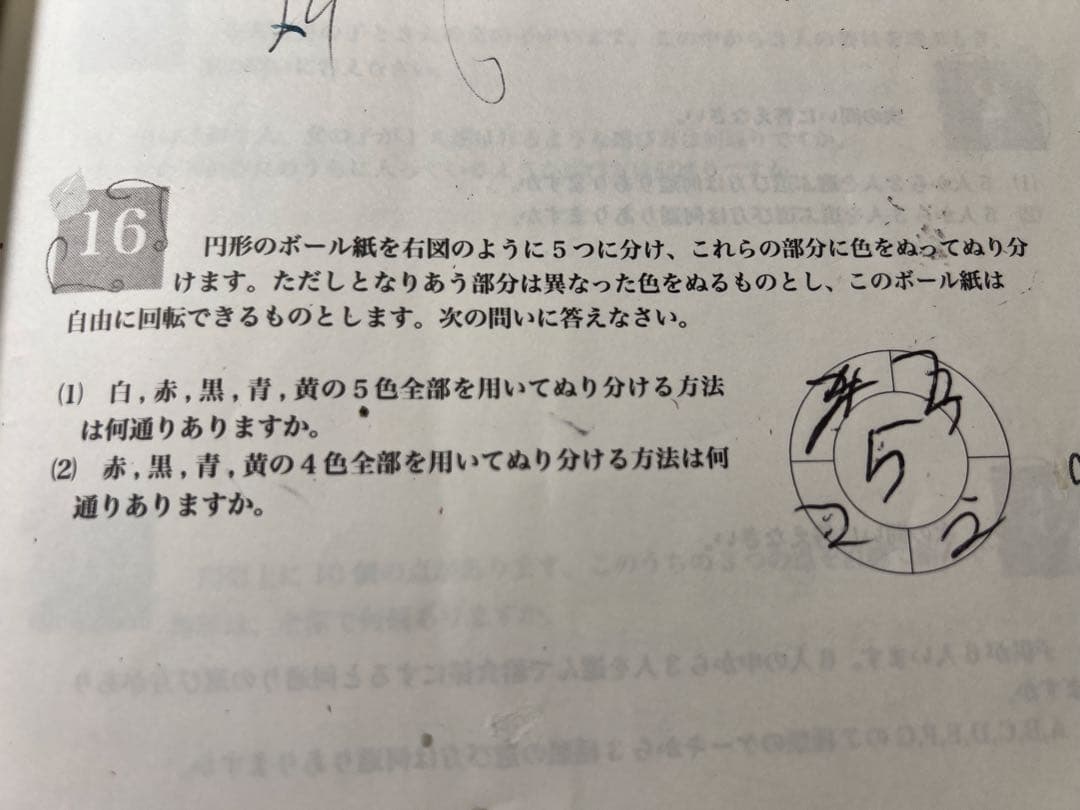 16
円形のボール紙を右図のように5つに分け、これらの部分に色をぬってぬり分
けます。ただしとなりあう部分は異なった色をぬるものとし、このボール紙は
自由に回転できるものとします。次の問いに答えなさい。
(1) 白,赤,黒,青,黄の5色全部を用いてぬり分ける方法
は何通りありますか。
(2) 赤,黒,青,黄の4色全部を用いてぬり分ける方法は何
通りありますか。
5
2
2